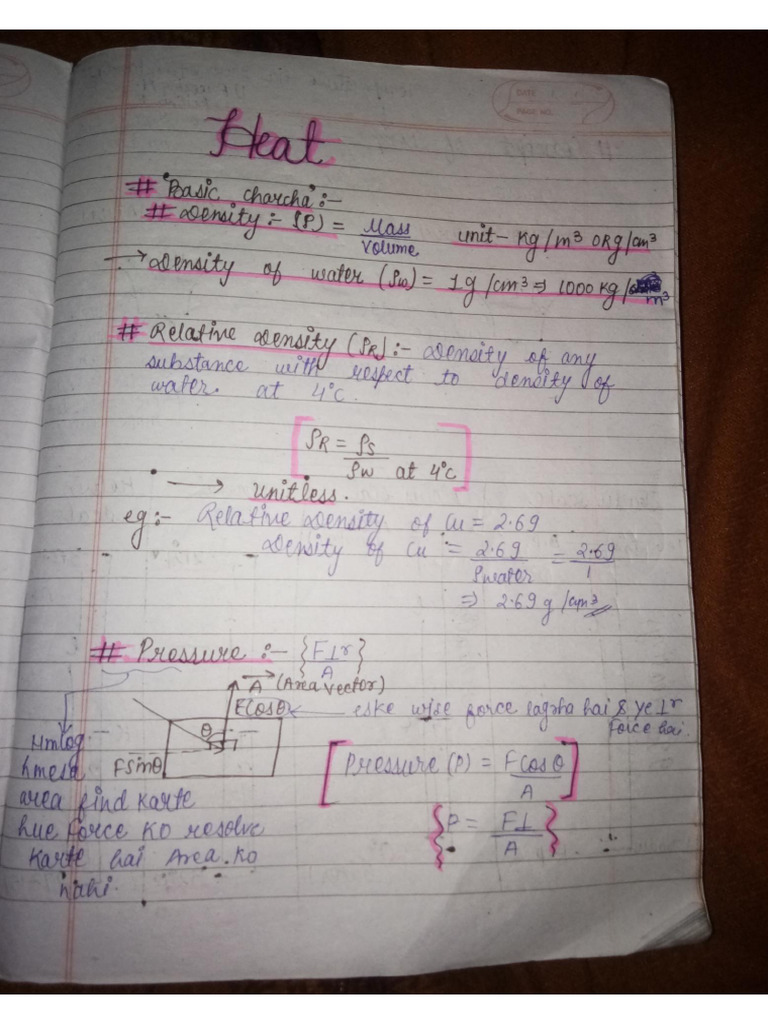 DATE
PAGE NO.
Heat
# Basic charcha :-
# Density :- (ρ) = Mass / Volume unit - Kg/m³ OR g/cm³
→ Density of water (ρw) = 1g/cm³ ⇒ 1000 Kg/m³
# Relative Density (ρR) :- Density of any
substance with respect to density of
water at 4°C.
[ρR = ρs / ρw at 4°C]
→ unitless.
eg :- Relative Density of Cu = 2.69
Density of Cu = 2.69 / ρwater = 2.69 / 1
⇒ 2.69 g/cm³
# Pressure :- {F⊥r / A}
A (Area vector)
FCosθ ← eske wise force lagrha hai & ye ⊥r
force hai.
θ
FSinθ
Hmlog
hmesa
area find karte
hue force ko resolve
karte hai Area ko
nahi.
[Pressure (P) = FCosθ / A]
{P = F⊥ / A}